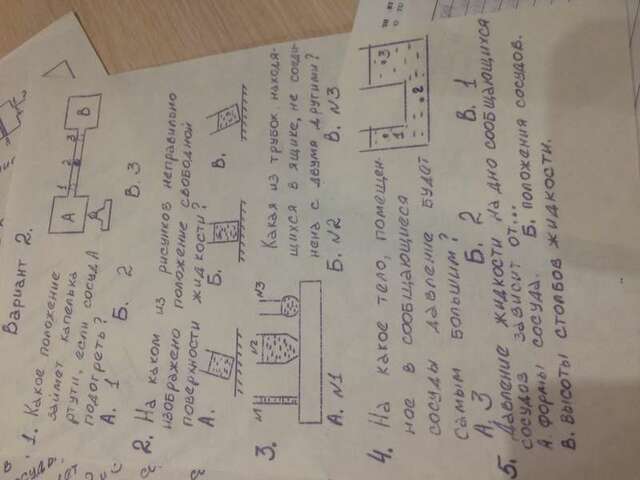 Вариант 2.
1. Какое положение
займет капелька
ртути, если сосуд А
подогреть?
А
1 2 3
В
А. 1 Б. 2 В. 3
2. На каком из рисунков неправильно
изображено положение свободной
поверхности жидкости?
А. Б. В.
3.
№1 №2 №3
Какая из трубок, находя-
щихся в ящике, не соеди-
нена с двумя другими?
А. №1 Б. №2 В. №3
4. На какое тело, помещен-
ное в сообщающиеся
сосуды давление будет
самым большим?
1 2 3
А. 3 Б. 2 В. 1
5. Давление жидкости на дно сообщающихся
сосудов зависит от...
А. формы сосуда. Б. положения сосудов.
В. высоты столбов жидкости.